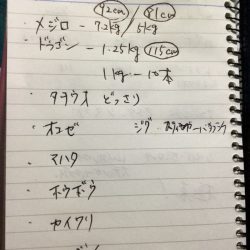 92cm 81cm
・メジロ - 7.2kg / 5kg
・ドラゴン - 1.25kg 115cm
1kg - 12本
・タチウオ どっさり
・オコゼ ジグ -
・マハタ
・ホウボウ
・カイワリ